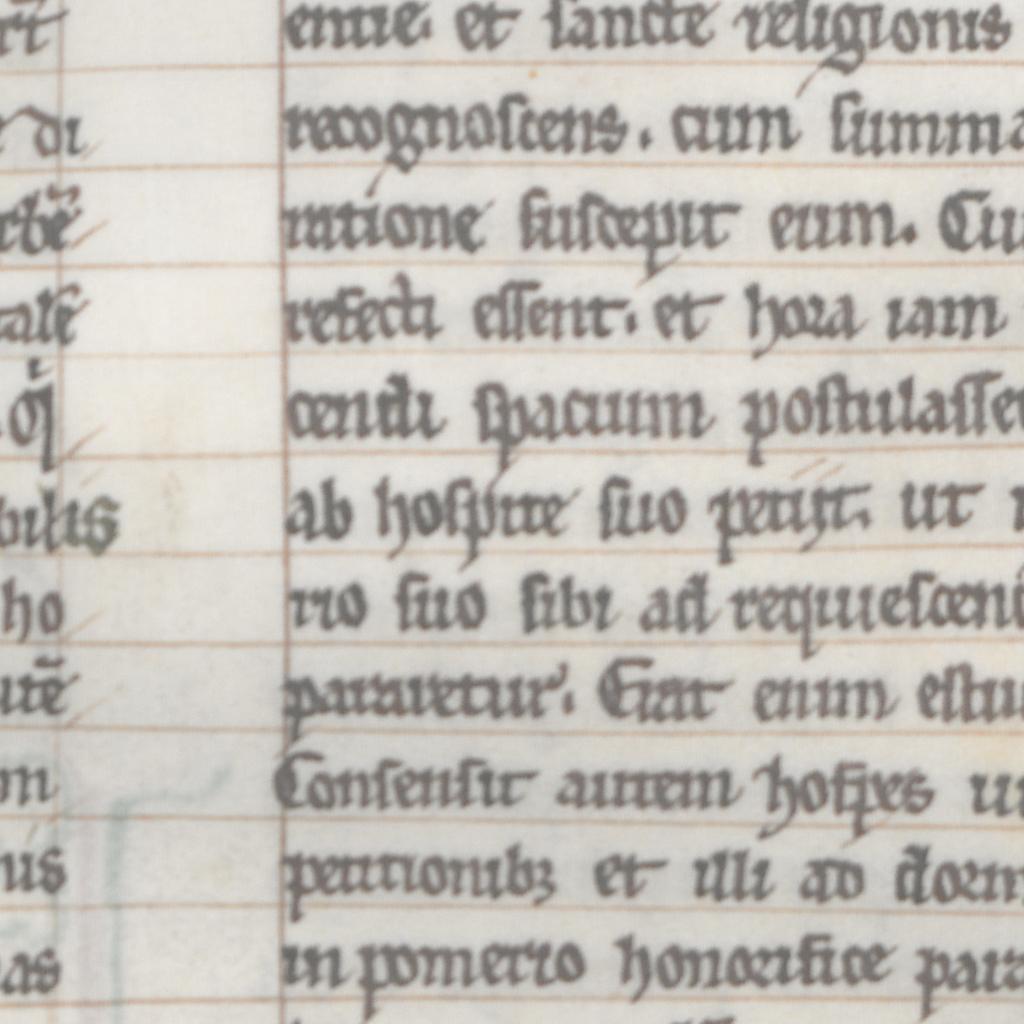 di
tale
bilis
ho
utē
nus
as
entie. et sancte religionis
recognoscens. cum summa
ratione suscepit eum. Cu
refecti essent. et hora iam
cendi spacium postulasse
ab hospite suo petijt. ut
rio suo sibi ad requiescen
pararetur. Erat enim estu
Consensit autem hospes
petitionibꝫ et illi ad dorm
in pomerio honorifice para